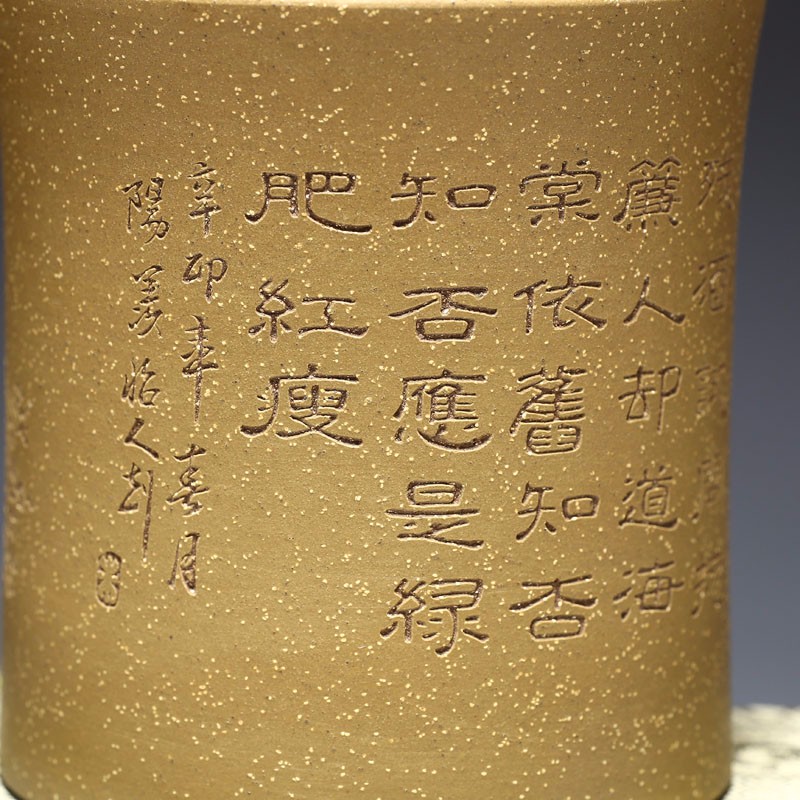 酒
簾人却道海
棠依舊知否
知否應是綠
肥紅瘦
辛卯年春月
陽羨人刻